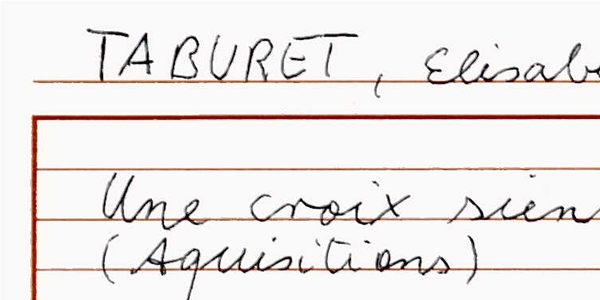 TABURET, Elisab
Une croix sien
(Aquisitions)